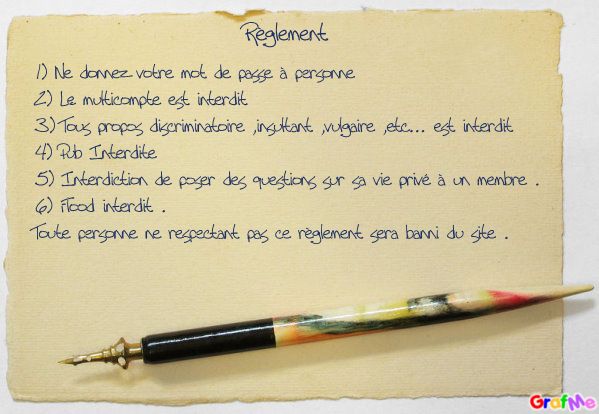 Règlement
1) Ne donnez votre mot de passe à personne
2) Le multicompte est interdit
3) Tous propos discriminatoire ,insultant ,vulgaire ,etc... est interdit
4) Pub Interdite
5) Interdiction de poser des questions sur sa vie privé à un membre .
6) Flood interdit .
Toute personne ne respectant pas ce règlement sera banni du site .
GrafMe